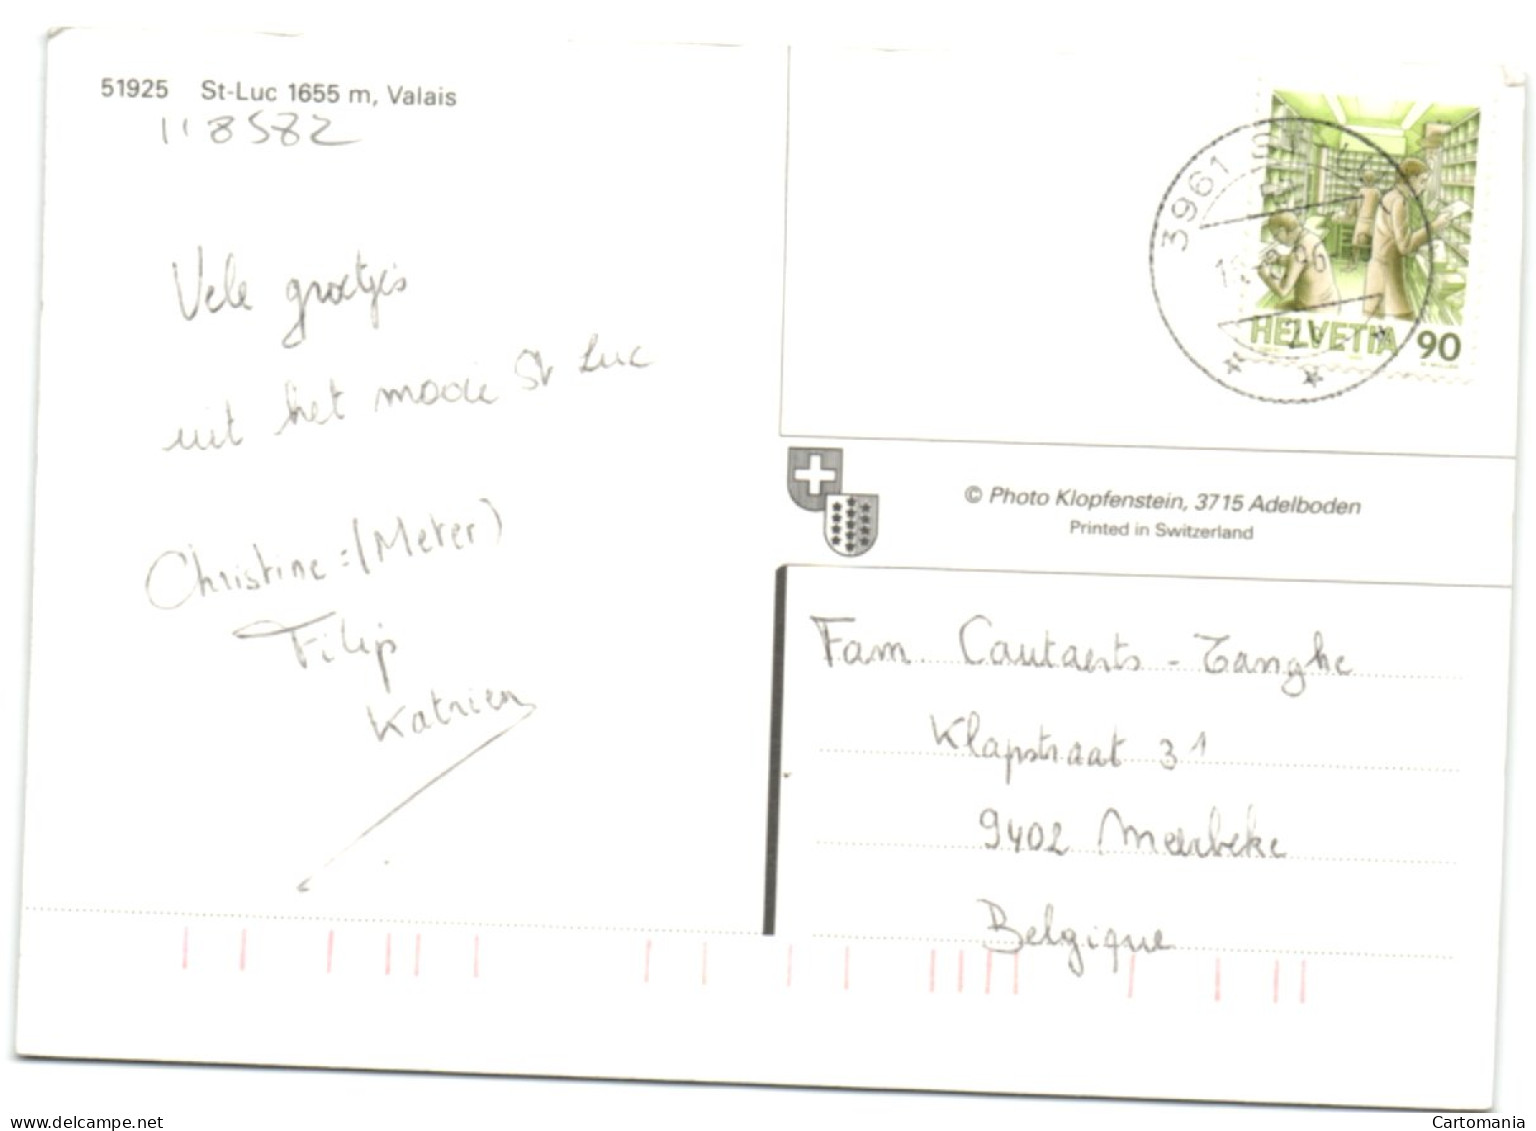 51925 St-Luc 1655 m, Valais
118582
Vele groetjes
uit het mooie St Luc
Christine :(Meter)
Filip
Katrien
3961
HELVETIA 90
© Photo Klopfenstein, 3715 Adelboden
Printed in Switzerland
Fam. Cautaerts - Tanghe
Klapstraat 31
9402 Meerbeke
Belgique
delcampe.net
Cartomania